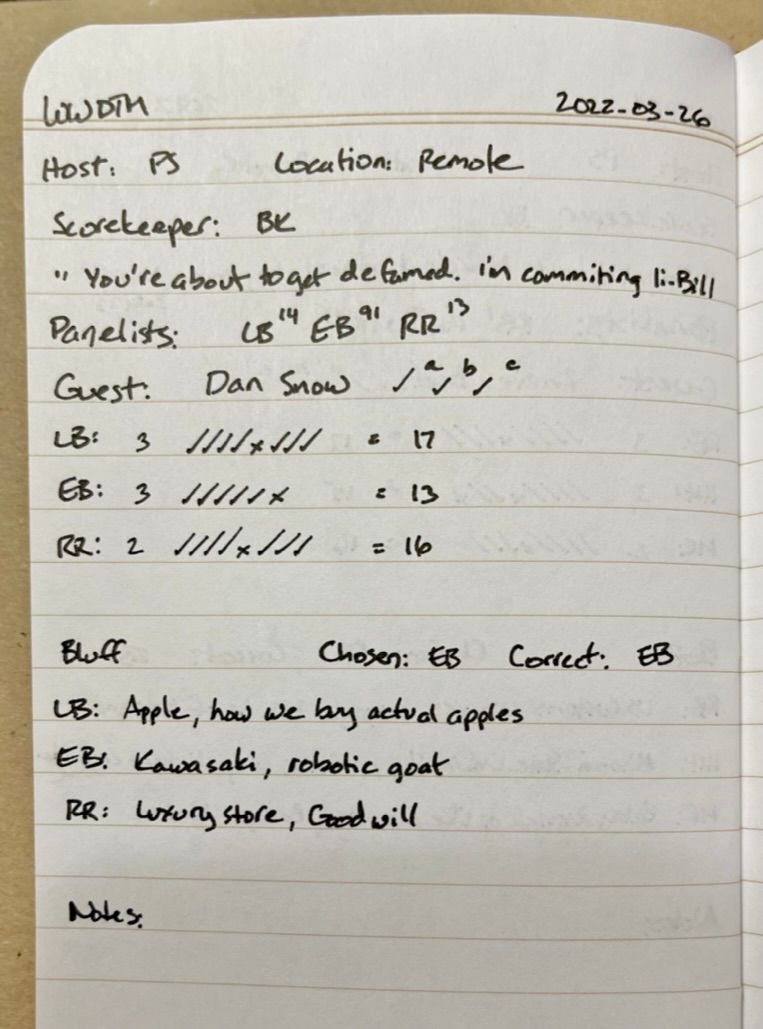 WWDTM 2022-03-26
Host: PS Location: Remote
Scorekeeper: BK
" You're about to get defamed. I'm commiting li-Bill
Panelists: LB 14 EB 91 RR 13
Guest: Dan Snow ✓ a ✓ b ✓ c
LB: 3 ////x/// = 17
EB: 3 /////x = 13
RR: 2 ////x/// = 16
Bluff Chosen: EB Correct: EB
LB: Apple, how we buy actual apples
EB: Kawasaki, robotic goat
RR: Luxury store, Goodwill
Notes: